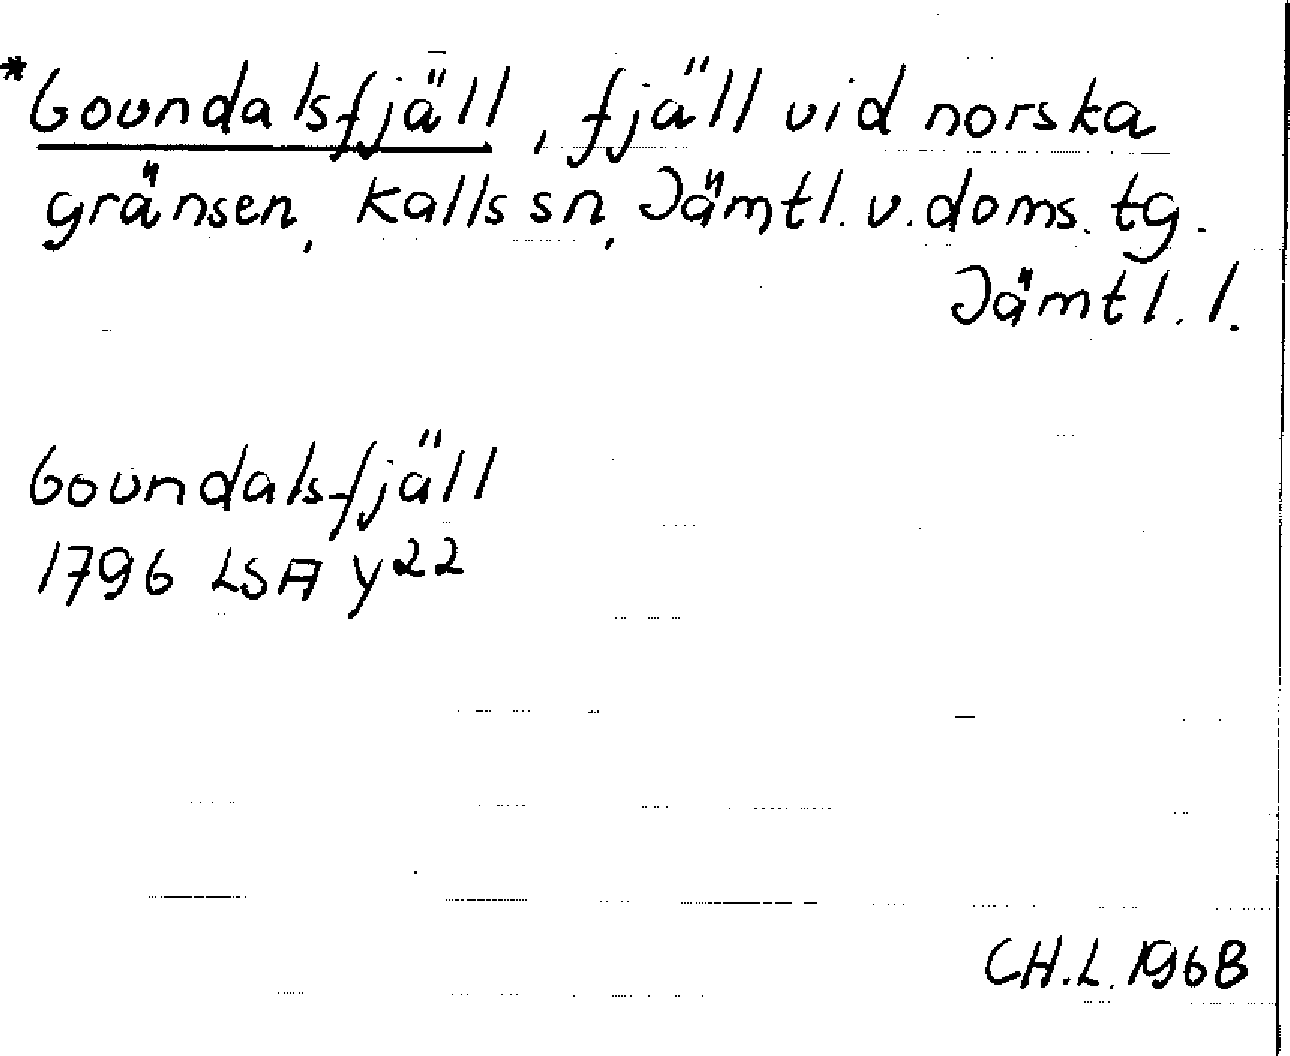 *Goundalsfjäll, fjäll vid norska
gränsen, Kalls sn, Jämtl. v. doms. tg.
Jämtl. l.
Goundalsfjäll
1796 LSA Y22
CH.L. 1968